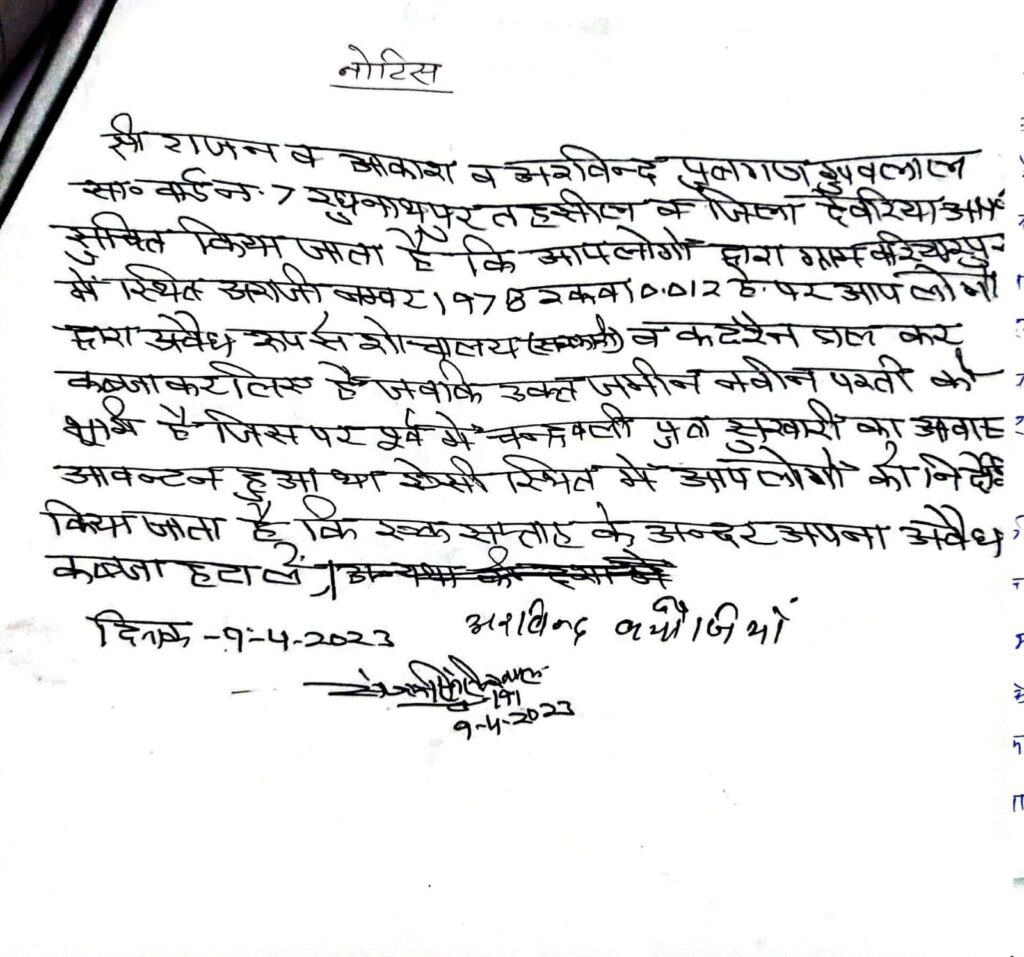 नोटिस
श्री राजन व आकाश व अरविन्द पुत्रगण शुवलाल
सा० वार्ड नं. 7 रघुनाथपुर तहसील व जिला देवरिया आप
सुचित किया जाता है कि आप लोगों द्वारा ग्राम
में स्थित अराजी नम्बर 1978 रकवा 0.012 हे. पर आप लोगों
द्वारा अवैध रूप से शौचालय व कटरैन डाल कर
कब्जा कर लिए हैं जबकि उक्त जमीन नवीन परती की
भूमि है जिस पर पूर्व में चन्द्रवली पुत्र सुखारी का आवास
आवन्टन हुआ था ऐसी स्थित में आप लोगों को निर्देश
किया जाता है कि एक सप्ताह के अन्दर अपना अवैध
कब्जा हटा लें,
दिनांक -9-4-2023 अरविन्द
9-4-2023